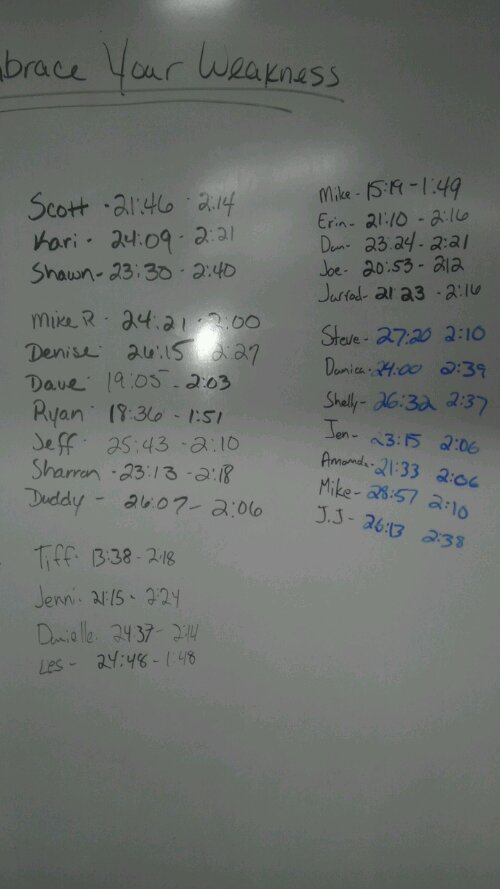 brace Your Weakness
Scott - 21:46 - 2:14
Kari - 24:09 - 2:21
Shawn - 23:30 - 2:40
Mike R - 24:21 - 2:00
Denise - 26:15 2:27
Dave - 19:05 - 2:03
Ryan - 18:36 - 1:51
Jeff - 25:43 - 2:10
Sharron - 23:13 - 2:18
Duddy - 26:07 - 2:06
Tiff - 13:38 - 2:18
Jenni - 21:15 - 2:24
Danielle - 24:37 - 2:14
Les - 24:48 - 1:48
Mike - 15:19 - 1:49
Erin - 21:10 - 2:16
Dan - 23:24 - 2:21
Joe - 20:53 - 2:12
Jarrod - 21:23 - 2:16
Steve - 27:20 2:10
Danica - 24:00 2:39
Shelly - 26:32 2:37
Jen - 23:15 2:06
Amanda - 21:33 2:06
Mike - 28:57 2:10
J.J - 26:13 2:38